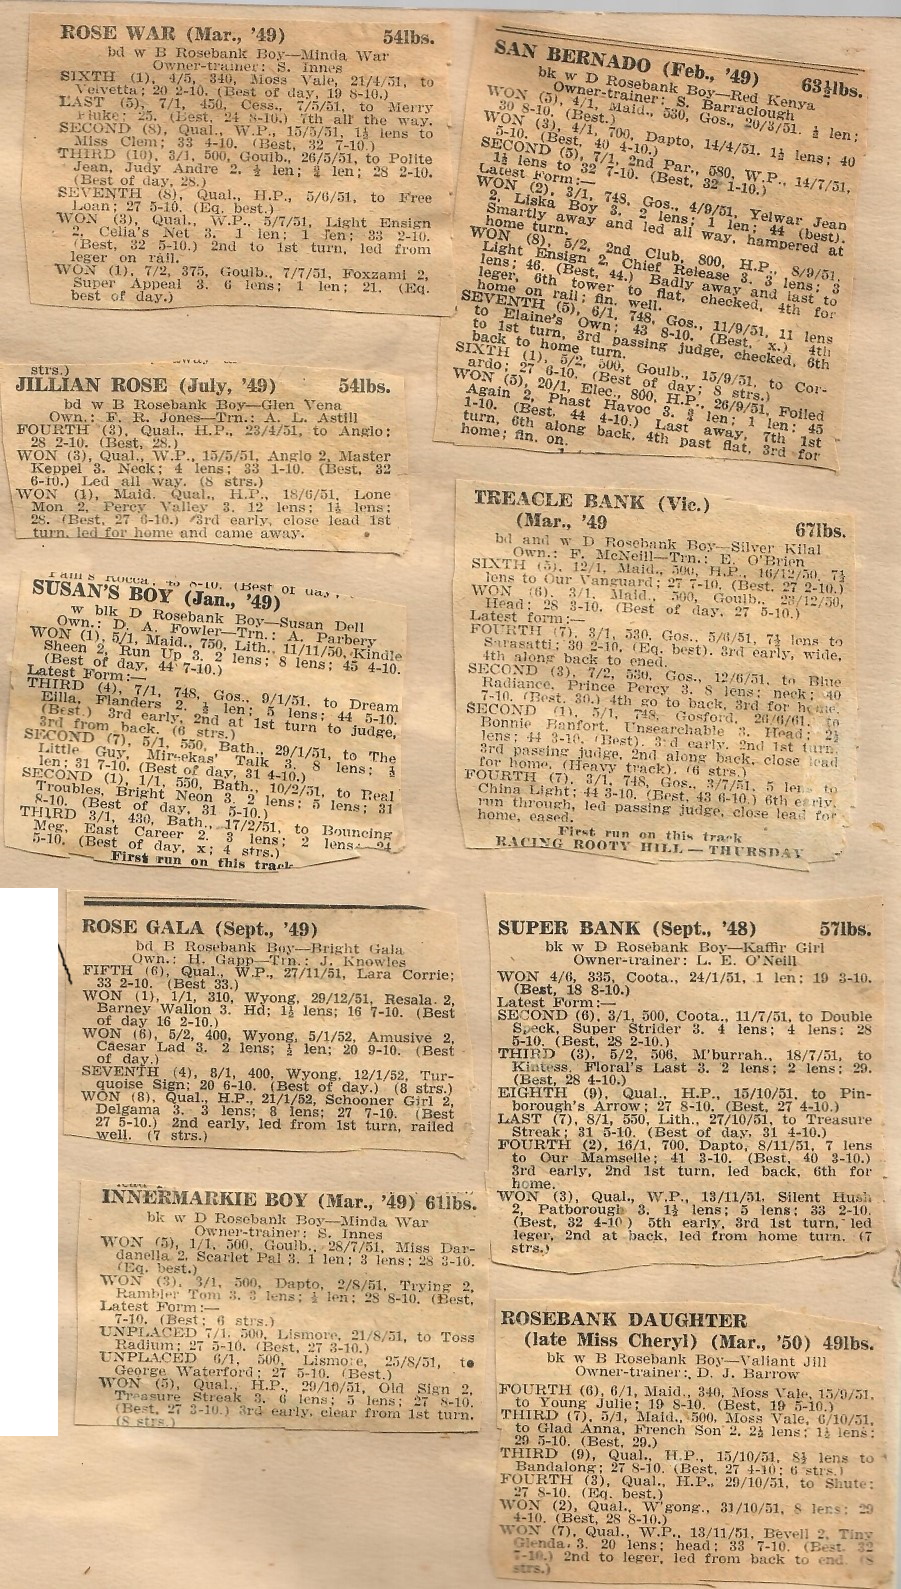 ROSE WAR (Mar., '49) 54lbs.
bd w B Rosebank Boy—Minda War
Owner-trainer: S. Innes
SIXTH (1), 4/5, 340, Moss Vale, 21/4/51, to
Velvetta; 20 2-10. (Best of day, 19 8-10.)
LAST (5), 7/1, 450, Cess., 7/5/51, to Merry
Fluke; 25. (Best, 24 8-10.) 7th all the way.
SECOND (8), Qual., W.P., 15/5/51, 1½ lens to
Miss Clem; 33 4-10. (Best, 32 7-10.)
THIRD (10), 3/1, 500, Goulb., 26/5/51, to Polite
Jean, Judy Andre 2. ½ len; ¾ len; 28 2-10.
(Best of day, 28.)
SEVENTH (8), Qual., H.P., 5/6/51, to Free
Loan; 27 5-10. (Eq. best.)
WON (3), Qual., W.P., 5/7/51, Light Ensign
2, Celia's Net 3. 1 len; 1 len; 33 2-10.
(Best, 32 5-10.) 2nd to 1st turn, led from
leger on rail.
WON (1), 7/2, 375, Goulb., 7/7/51, Foxzami 2,
Super Appeal 3. 6 lens; 1 len; 21. (Eq.
best of day.)
strs.)
JILLIAN ROSE (July, '49) 54lbs.
bd w B Rosebank Boy—Glen Vena
Own.: F. R. Jones—Trn.: A. L. Astill
FOURTH (3), Qual., H.P., 23/4/51, to Anglo;
28 2-10. (Best, 28.)
WON (3), Qual., W.P., 15/5/51, Anglo 2, Master
Keppel 3. Neck; 4 lens; 33 1-10. (Best, 32
6-10.) Led all way. (8 strs.)
WON (1), Maid. Qual., H.P., 18/6/51, Lone
Mon 2, Percy Valley 3. 12 lens; 1½ lens;
28. (Best, 27 6-10.) 3rd early, close lead 1st
turn, led for home and came away.
SUSAN'S BOY (Jan., '49)
w blk D Rosebank Boy—Susan Dell
Own.: D. A. Fowler—Trn.: A. Parbery
WON (1), 5/1, Maid., 750, Lith., 11/11/50, Kindle
Sheen 2, Run Up 3. 2 lens; 8 lens; 45 4-10.
(Best of day, 44 7-10.)
Latest Form:—
THIRD (4), 7/1, 748, Gos., 9/1/51, to Dream
Eilla, Flanders 2. ½ len; 5 lens; 44 5-10.
(Best.) 3rd early, 2nd at 1st turn to judge,
3rd from back. (6 strs.)
SECOND (7), 5/1, 550, Bath., 29/1/51, to The
Little Guy, Mirsekas' Talk 3. 8 lens; ½
len; 31 7-10. (Best of day, 31 4-10.)
SECOND (1), 1/1, 550, Bath., 10/2/51, to Real
Troubles, Bright Neon 3. 2 lens; 5 lens; 31
8-10. (Best of day, 31 5-10.)
THIRD 3/1, 430, Bath., 17/2/51, to Bouncing
Meg, East Career 2. 3 lens; 2 lens; 24
5-10. (Best of day, x; 4 strs.)
First run on this track
ROSE GALA (Sept., '49)
bd B Rosebank Boy—Bright Gala
Own.: H. Gapp—Trn.: J. Knowles
FIFTH (6), Qual., W.P., 27/11/51, Lara Corrie;
33 2-10. (Best 33.)
WON (1), 1/1, 310, Wyong, 29/12/51, Resala. 2,
Barney Wallon 3. Hd; 1½ lens; 16 7-10. (Best
of day 16 2-10.)
WON (6), 5/2, 400, Wyong, 5/1/52, Amusive 2,
Caesar Lad 3. 2 lens; ½ len; 20 9-10. (Best
of day.)
SEVENTH (4), 8/1, 400, Wyong, 12/1/52, Tur-
quoise Sign; 20 6-10. (Best of day.) (8 strs.)
WON (8), Qual., H.P., 21/1/52, Schooner Girl 2,
Delgama 3. 3 lens; 8 lens; 27 7-10. (Best
27 5-10.) 2nd early, led from 1st turn, railed
well. (7 strs.)
INNERMARKIE BOY (Mar., '49) 61lbs.
bk w D Rosebank Boy—Minda War
Owner-trainer: S. Innes
WON (5), 1/1, 500, Goulb., 28/7/51, Miss Dar-
danella 2, Scarlet Pal 3. 1 len; 3 lens; 28 3-10.
(Eq. best.)
WON (3), 3/1, 500, Dapto, 2/8/51, Trying 2,
Rambler Tom 3. 3 lens; ½ len; 28 8-10. (Best,
Latest Form:—
7-10. (Best; 6 strs.)
UNPLACED 7/1, 500, Lismore, 21/8/51, to Toss
Radium; 27 5-10. (Best, 27 3-10.)
UNPLACED 6/1, 500, Lismore, 25/8/51, to
George Waterford; 27 5-10. (Best.)
WON (5), Qual., H.P., 29/10/51, Old Sign 2,
Treasure Streak 3. 6 lens; 5 lens; 27 8-10.
(Best, 27 3-10.) 3rd early, clear from 1st turn.
(8 strs.)
SAN BERNADO (Feb., '49) 63½lbs.
bk w D Rosebank Boy—Red Kenya
Owner-trainer: S. Barraclough
WON (5), 4/1, Maid., 530, Gos., 20/3/51. ½ len;
30 8-10. (Best.)
WON (3), 4/1, 700, Dapto, 14/4/51. 1½ lens; 40
5-10. (Best, 40 4-10.)
SECOND (5), 7/1, 2nd Par., 580, W.P., 14/7/51,
1½ lens to 32 7-10. (Best, 32 1-10.)
Latest Form:—
WON (2), 3/1, 748, Gos., 4/9/51, Yelwar Jean
2, Liska Boy 3. 2 lens; 1 len; 44 (best).
Smartly away and led all way, hampered at
home turn.
WON (8), 5/2, 2nd Club, 800, H.P., 8/9/51,
Light Ensign 2, Chief Release 3. 3 lens; 3
lens; 46. (Best, 44.) Badly away and last to
leger, 6th tower to flat, checked, 4th for
home on rail; fin. well.
SEVENTH (5), 6/1, 748, Gos., 11/9/51, 11 lens
to Elaine's Own; 43 8-10. (Best, x.) 4th
to 1st turn, 3rd passing judge, checked, 6th
back to home turn.
SIXTH (1), 5/2, 500, Goulb., 15/9/51, to Cor-
ardo; 27 6-10. (Best of day; 8 strs.)
WON (5), 20/1, Elec., 800, H.P., 26/9/51, Foiled
Again 2, Phast Havoc 3. ¾ len; 1 len; 45
1-10. (Best, 44 4-10.) Last away, 7th 1st
turn, 6th along back, 4th past flat, 3rd for
home; fin. on.
TREACLE BANK (Vic.)
(Mar., '49 67lbs.
bd and w D Rosebank Boy—Silver Kilal
Own.: F. McNeill—Trn.: E. O'Brien
SIXTH (5), 12/1, Maid., 506, H.P., 16/12/50, 7½
lens to Our Vanguard; 27 7-10. (Best, 27 2-10.)
WON (6), 3/1, Maid., 500, Goulb., 23/12/50,
Head; 28 3-10. (Best of day, 27 5-10.)
Latest form:—
FOURTH (7), 3/1, 530, Gos., 5/6/51, 7½ lens to
Sarasatti; 30 2-10. (Eq. best). 3rd early, wide,
4th along back to ened.
SECOND (3), 7/2, 530, Gos., 12/6/51, to Blue
Radiance, Prince Percy 3. 8 lens; neck; 40
7-10. (Best, 30.) 4th go to back, 3rd for home.
SECOND (1), 5/1, 748, Gosford, 26/6/61, to
Bonnie Banfort, Unsearchable 3. Head; 2½
lens; 44 3-10. (Best). 3rd early, 2nd 1st turn,
3rd passing judge, 2nd along back, close lead
for home. (Heavy track). (6 strs.)
FOURTH (7), 3/1, 748, Gos., 3/7/51, 5 lens to
China Light; 44 3-10. (Best, 43 6-10.) 6th early,
run through, led passing judge, close lead for
home, eased.
First run on this track
RACING ROOTY HILL — THURSDAY
SUPER BANK (Sept., '48) 57lbs.
bk w D Rosebank Boy—Kaffir Girl
Owner-trainer: L. E. O'Neill
WON 4/6, 335, Coota., 24/1/51, 1 len; 19 3-10.
(Best, 18 8-10.)
Latest Form:—
SECOND (6), 3/1, 500, Coota., 11/7/51, to Double
Speck, Super Strider 3. 4 lens; 4 lens; 28
5-10. (Best, 28 2-10.)
THIRD (3), 5/2, 506, M'burrah., 18/7/51, to
Kintess, Floral's Last 3. 2 lens; 2 lens; 29.
(Best, 28 4-10.)
EIGHTH (9), Qual., H.P., 15/10/51, to Pin-
borough's Arrow; 27 8-10. (Best, 27 4-10.)
LAST (7), 8/1, 550, Lith., 27/10/51, to Treasure
Streak; 31 5-10. (Best of day, 31 4-10.)
FOURTH (2), 16/1, 700, Dapto, 8/11/51, 7 lens
to Our Mamselle; 41 3-10. (Best, 40 3-10.)
3rd early, 2nd 1st turn, led back, 6th for
home.
WON (3), Qual., W.P., 13/11/51, Silent Hush
2, Patborough 3. 1½ lens; 5 lens; 33 2-10.
(Best, 32 4-10 ) 5th early, 3rd 1st turn, led
leger, 2nd at back, led from home turn. (7
strs.)
ROSEBANK DAUGHTER
(late Miss Cheryl) (Mar., '50) 49lbs.
bk w B Rosebank Boy—Valiant Jill
Owner-trainer: D. J. Barrow
FOURTH (6), 6/1, Maid., 340, Moss Vale, 15/9/51,
to Young Julie; 19 8-10. (Best, 19 5-10.)
THIRD (7), 5/1, Maid., 500, Moss Vale, 6/10/51,
to Glad Anna, French Son 2. 2½ lens; 1½ lens;
29 5-10. (Best, 29.)
THIRD (9), Qual., H.P., 15/10/51, 8½ lens to
Bandalong; 27 8-10. (Best, 27 4-10; 6 strs.)
FOURTH (3), Qual., H.P., 29/10/51, to Shute;
27 8-10. (Eq. best.)
WON (2), Qual., W'gong., 31/10/51, 8 lens; 29
4-10. (Best, 28 8-10.)
WON (7), Qual., W.P., 13/11/51, Bevell 2, Tiny
Glenda 3. 20 lens; head; 33 7-10. (Best, 32
7-10.) 2nd to leger, led from back to end. (8
strs.)